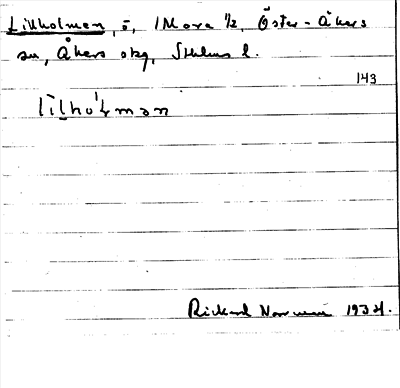 Lillholmen, ö, 1 Mora ½, Öster-Åkers
sn, Åkers skg, Sthlms l.
143
lìlho'ḷmən
Rickard 1934.